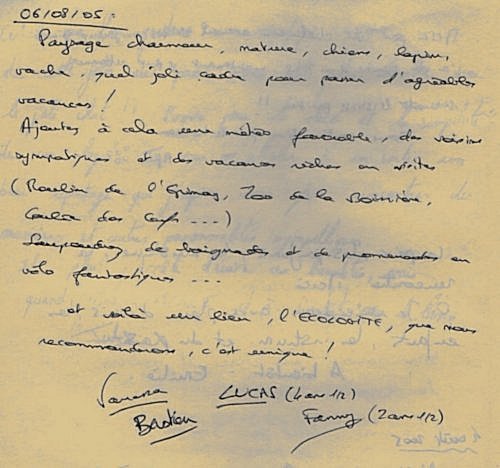 06/08/05 :
Paysage charmeur, nature, chiens, lapin,
vache, quel joli cadre pour passer d'agréables
vacances !
Ajoutez à cela une météo favorable, des voisins
sympatiques et des vacances riches en visites
(Moulin de l'Epinay, Zoo de la Boissière,
des ...)
Saupoudrez de baignades et de promenades en
vélo fantastiques ...
et voilà un lieu, l'ECOLOGITE, que nous
recommandrons, c'est unique !
Vanessa LUCAS (4 ans 1/2)
Bastien Fanny (2 ans 1/2)